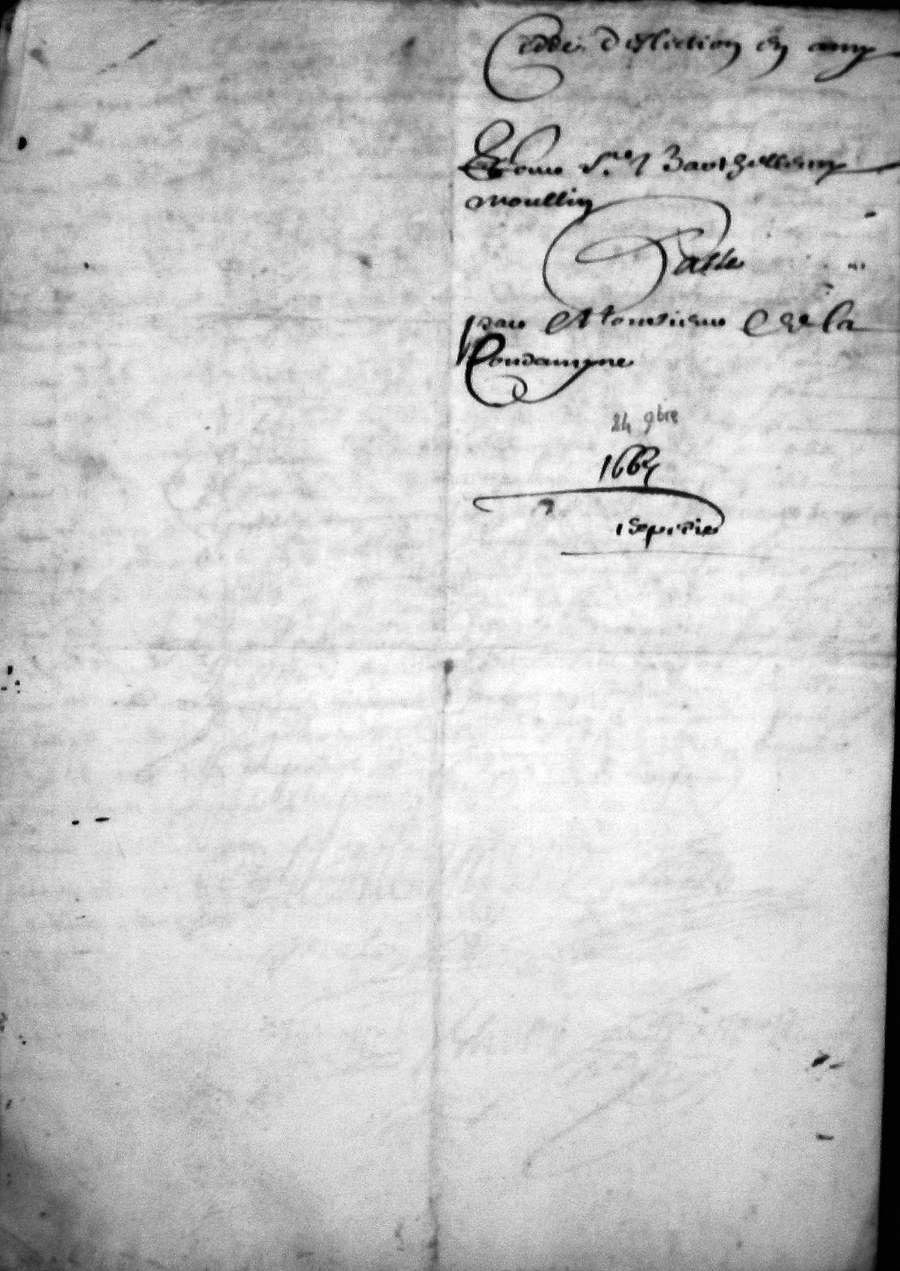 Cede d'esliction en amy
Pour Sre Barthellemy
Moullin
Passe
par Monsieur De la
Condamyne
24 9bre
1665
Expedie